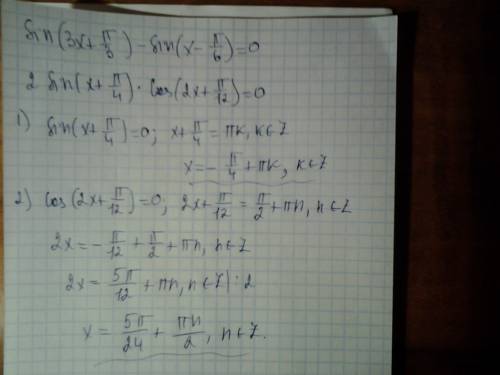 sin(3x+π/3)-sin(x-π/6)=0
2 sin(x+π/4)·cos(2x+π/12)=0
1) sin(x+π/4)=0; x+π/4=πk, k∈Z
x=-π/4+πk, k∈Z
2) cos(2x+π/12)=0; 2x+π/12=π/2+πn, n∈Z
2x=-π/12+π/2+πn, n∈Z
2x=5π/12+πn, n∈Z|:2
x=5π/24+πn/2, n∈Z.